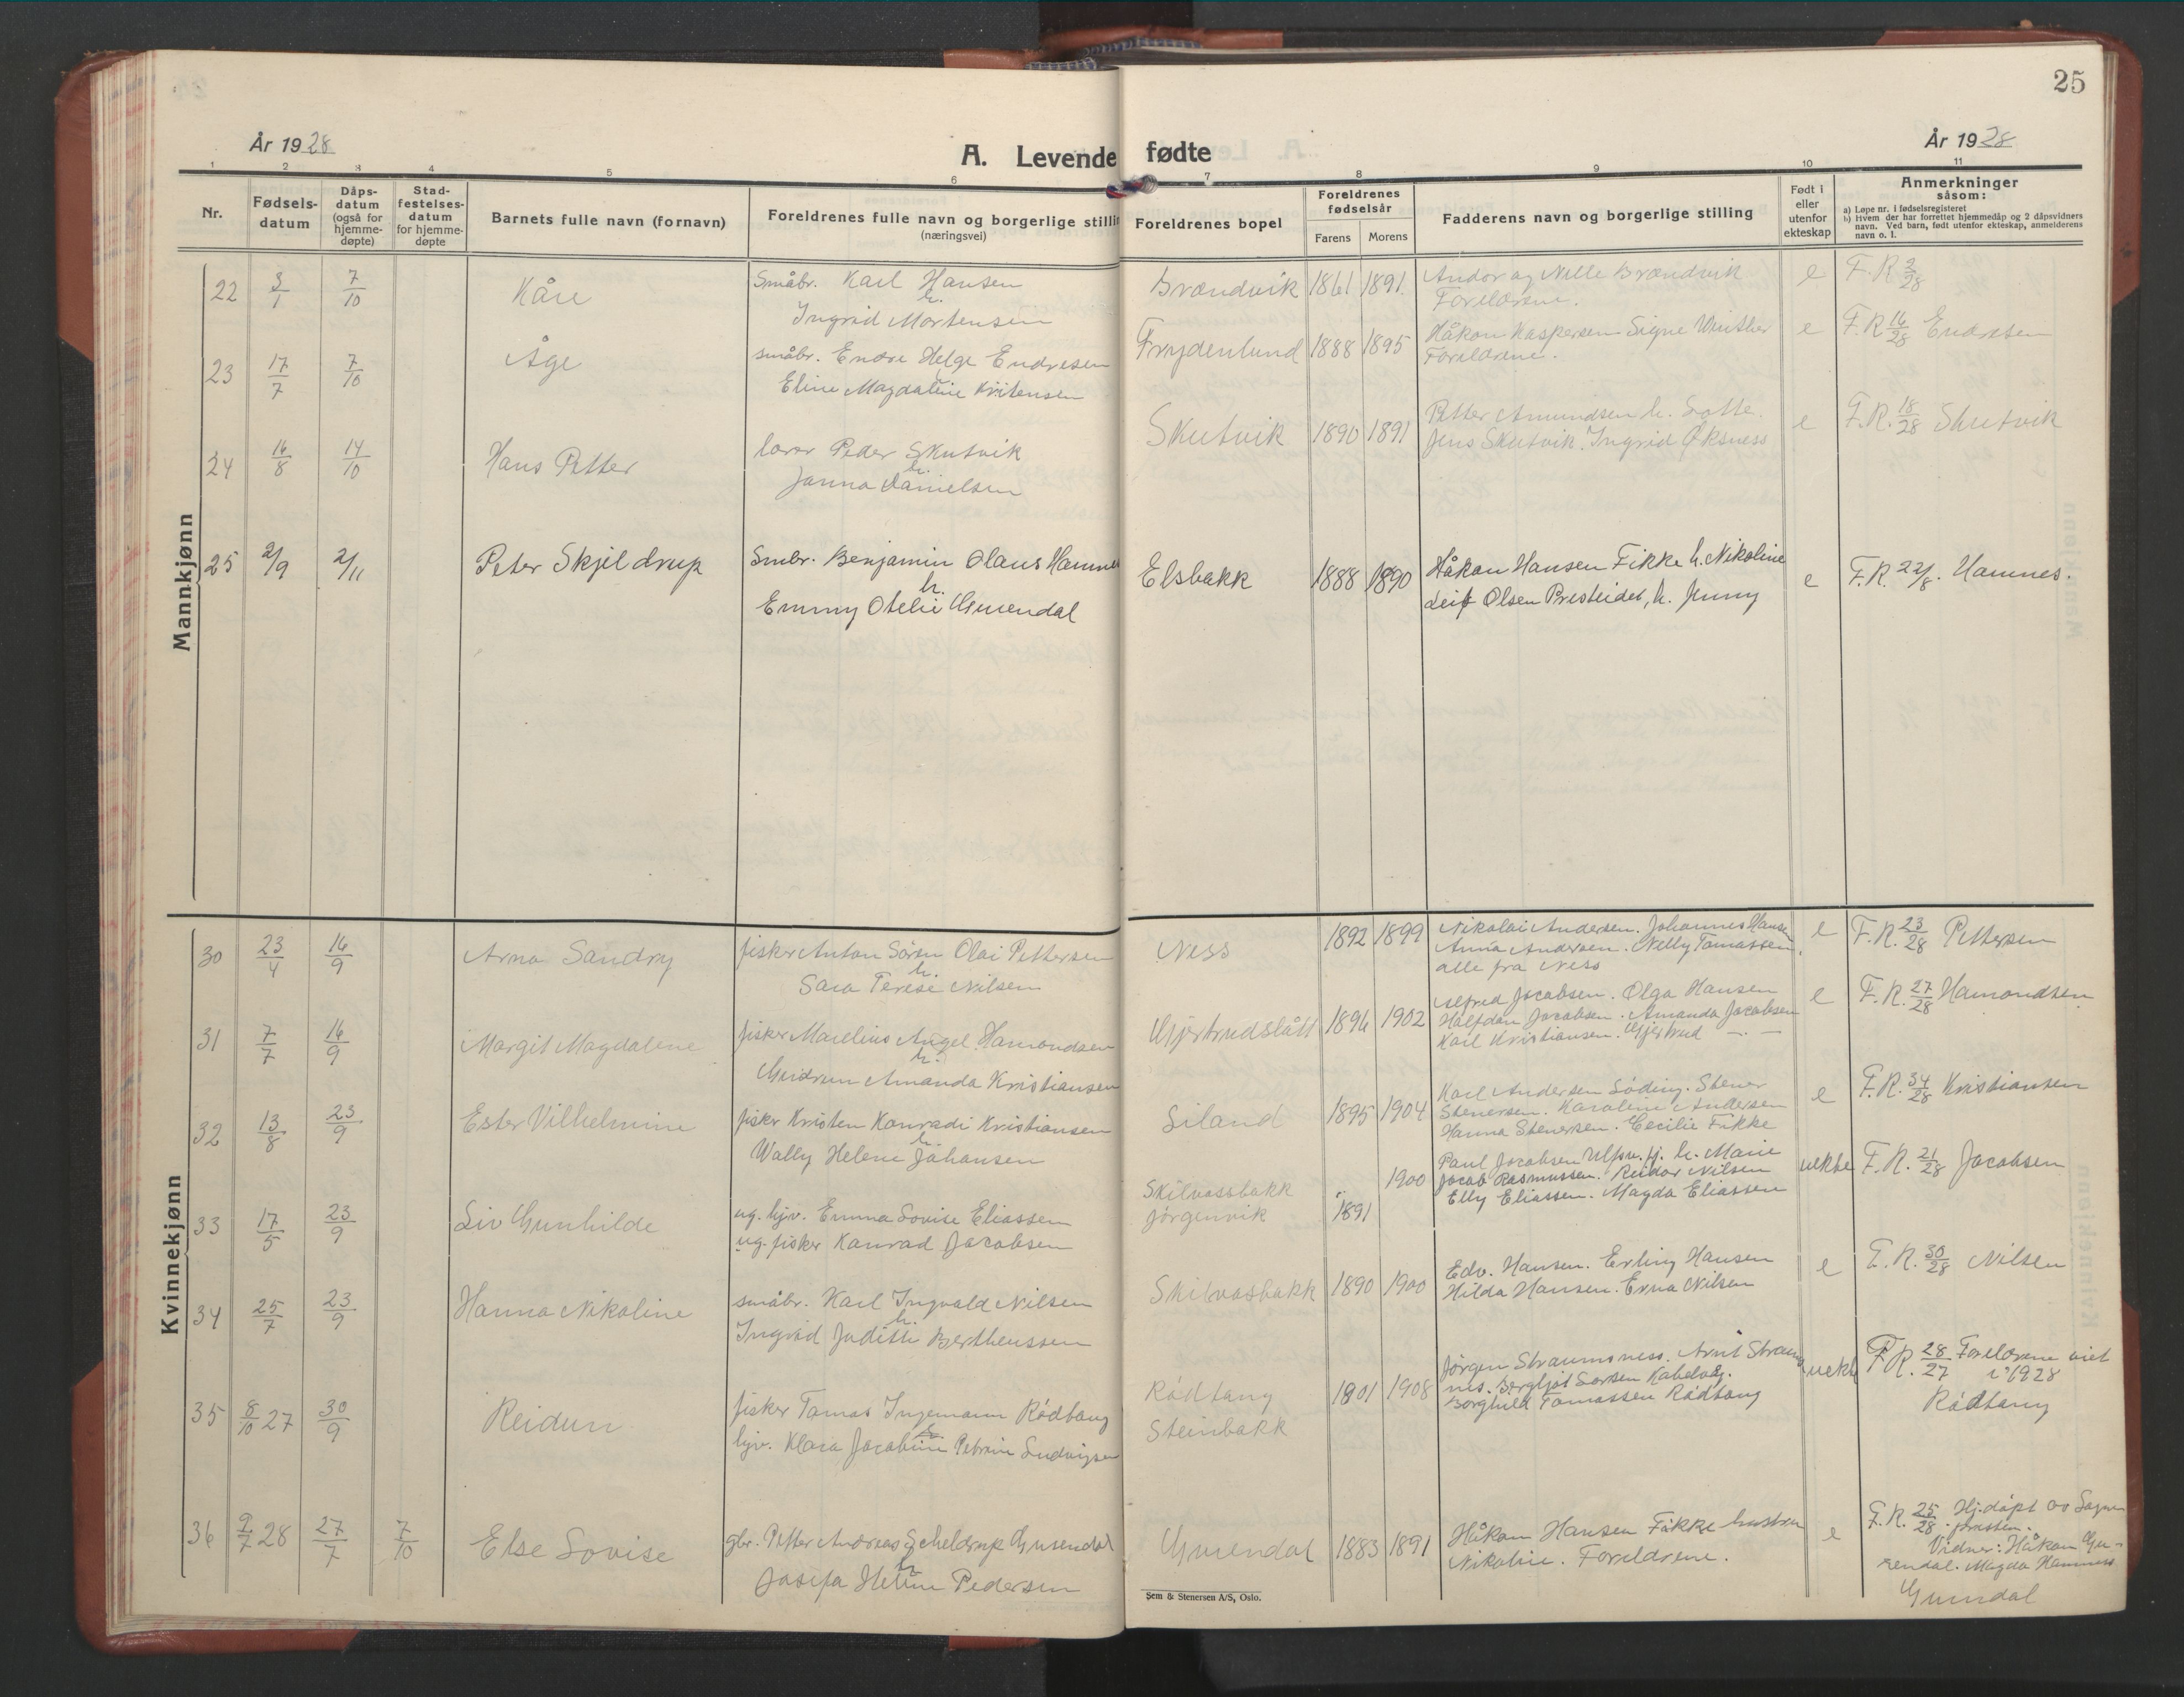 25
År 1928
A. Levende fødte
År 1928
1 2 3 4 5 6 7 8 9 10 11
Nr.
Fødsels-
datum
Dåps-
datum
(også for
hjemme-
døpte)
Stad-
festelses-
datum
for hjemme-
døpte
Barnets fulle navn (fornavn)
Foreldrenes fulle navn og borgerlige stilli
(næringsvei)
Foreldrenes bopel
Foreldrenes
fødselsår
Farens Morens
Fadderens navn og borgerlige stilling
Født i
eller
utenfor
ekteskap
Anmerkninger
såsom:
a) Løpe nr. i fødselsregisteret
b) Hvem der har forrettet hjemmedåp og 2 dåpsvidners
navn. Ved barn, født utenfor ekteskap, anmelderens
navn o. l.
Mannkjønn
22 3/1 7/10 Kåre Småbr. Karl Hansen
h.
Ingrid Mortensen
Brændvik 1861 1891 Andor og Nelle Brændvik
Foreldrene.
e F.R. 2/28
23 17/7 7/10 Åge småbr. Endre Helge Endresen
Eline Magdalene Kritensen
Frydenlund 1888 1895 Håkon Kaspersen Signe Winther
Foreldrene.
e F.R. 16/28 Endresen
24 16/8 14/10 Hans Petter lærer Peder Skutvik
h.
Janna Danielsen
Skutvik 1890 1891 Petter Amundsen h. Lotte.
Jens Skutvik. Ingrid Øksness
e F.R. 18/28 Skutvik
25 2/9 2/11 Peter Skjeldrup Smbr. Benjamin Olaus Hamne
h.
Emmy Otelie Gusendal
Elsbakk 1888 1890 Håkon Hansen Fikke h. Nikoline
Leif Olsen Presteidet, h. Jenny
e F.R. 22/8. Hamnes.
Kvinnekjønn
30 23/4 16/9 Arna Sandry fisker Anton Sören Olai Pettersen
h.
Sara Terese Nilsen
Ness 1892 1899 Nikolai Andersen. Johannes Hansen
Anna Andersen. Nelly Tomassen,
alle fra Ness
e F.R. 23/28 Pettersen
31 7/7 16/9 Margit Magdalene fisker Marelius Angel Hamondsen
h.
Gudrun Amanda Kristiansen
Gjertrudslått 1896 1902 Alfred Jacobsen. Olga Hansen
Halfdan Jacobsen. Amanda Jacobsen
Karl Kristiansen. Gjertrud — . —
e F.R. 27/28 Hamondsen
32 13/8 23/9 Ester Vilhelmine fisker Kristen Konradi Kristiansen
h.
Wally Helene Johansen
Siland 1895 1904 Karl Andersen Söding. Stener
Stenersen. Karoline Andersen
Hanna Stenersen. Cecilie Fikke
e F.R. 34/28 Kristiansen
33 17/5 23/9 Liv Gunhilde ug. hjv. Emma Lovise Eliassen
ug. fisker Konrad Jacobsen
Skilvassbakk
Jörgenvik
1900
1891
Paul Jacobsen Ulfsv. hj. h. Marie
Jacob Rasmussen. Reidar Nilsen
Elly Eliassen. Magda Eliassen
uekte F.R. 21/28 Jacobsen
34 25/7 23/9 Hanna Nikoline småbr. Karl Ingvald Nilsen
h.
Ingrid Judith Bertheussen
Skilvasbakk 1890 1900 Edv. Hansen. Erling Hansen
Hilda Hansen. Erna Nilsen
e F.R. 30/28 Nilsen
35 8/10 27 30/9 Reidun fisker Tomas Ingemann Rödtang
h.
hjv. Klara Jacobine Petrine Ludvigsen
Rödtang
Steinbakk
1901 1908 Jörgen Straumsness. Arnt Straums
nes. Bergljot Larsen Kabelvåg.
Borghild Tomassen Rödtang
uekte F.R. 28/27 Foreldrene viet
i 1928
Rödtang
36 9/7 28 27/7 7/10 Else Lovise gbr. Petter Andreas Scheldrup Gusendal
h.
Josefa Helene Pedersen
Gusendal 1883 1891 Håkon Hansen Fikke hustru
Nikoline. Foreldrene.
e F.R. 25/28. Hj.döpt av Sogne
presten.
Vidner: Håkon Gu-
sendal. Magda Hamness
Gusendal
Sem & Stenersen A/S, Oslo.